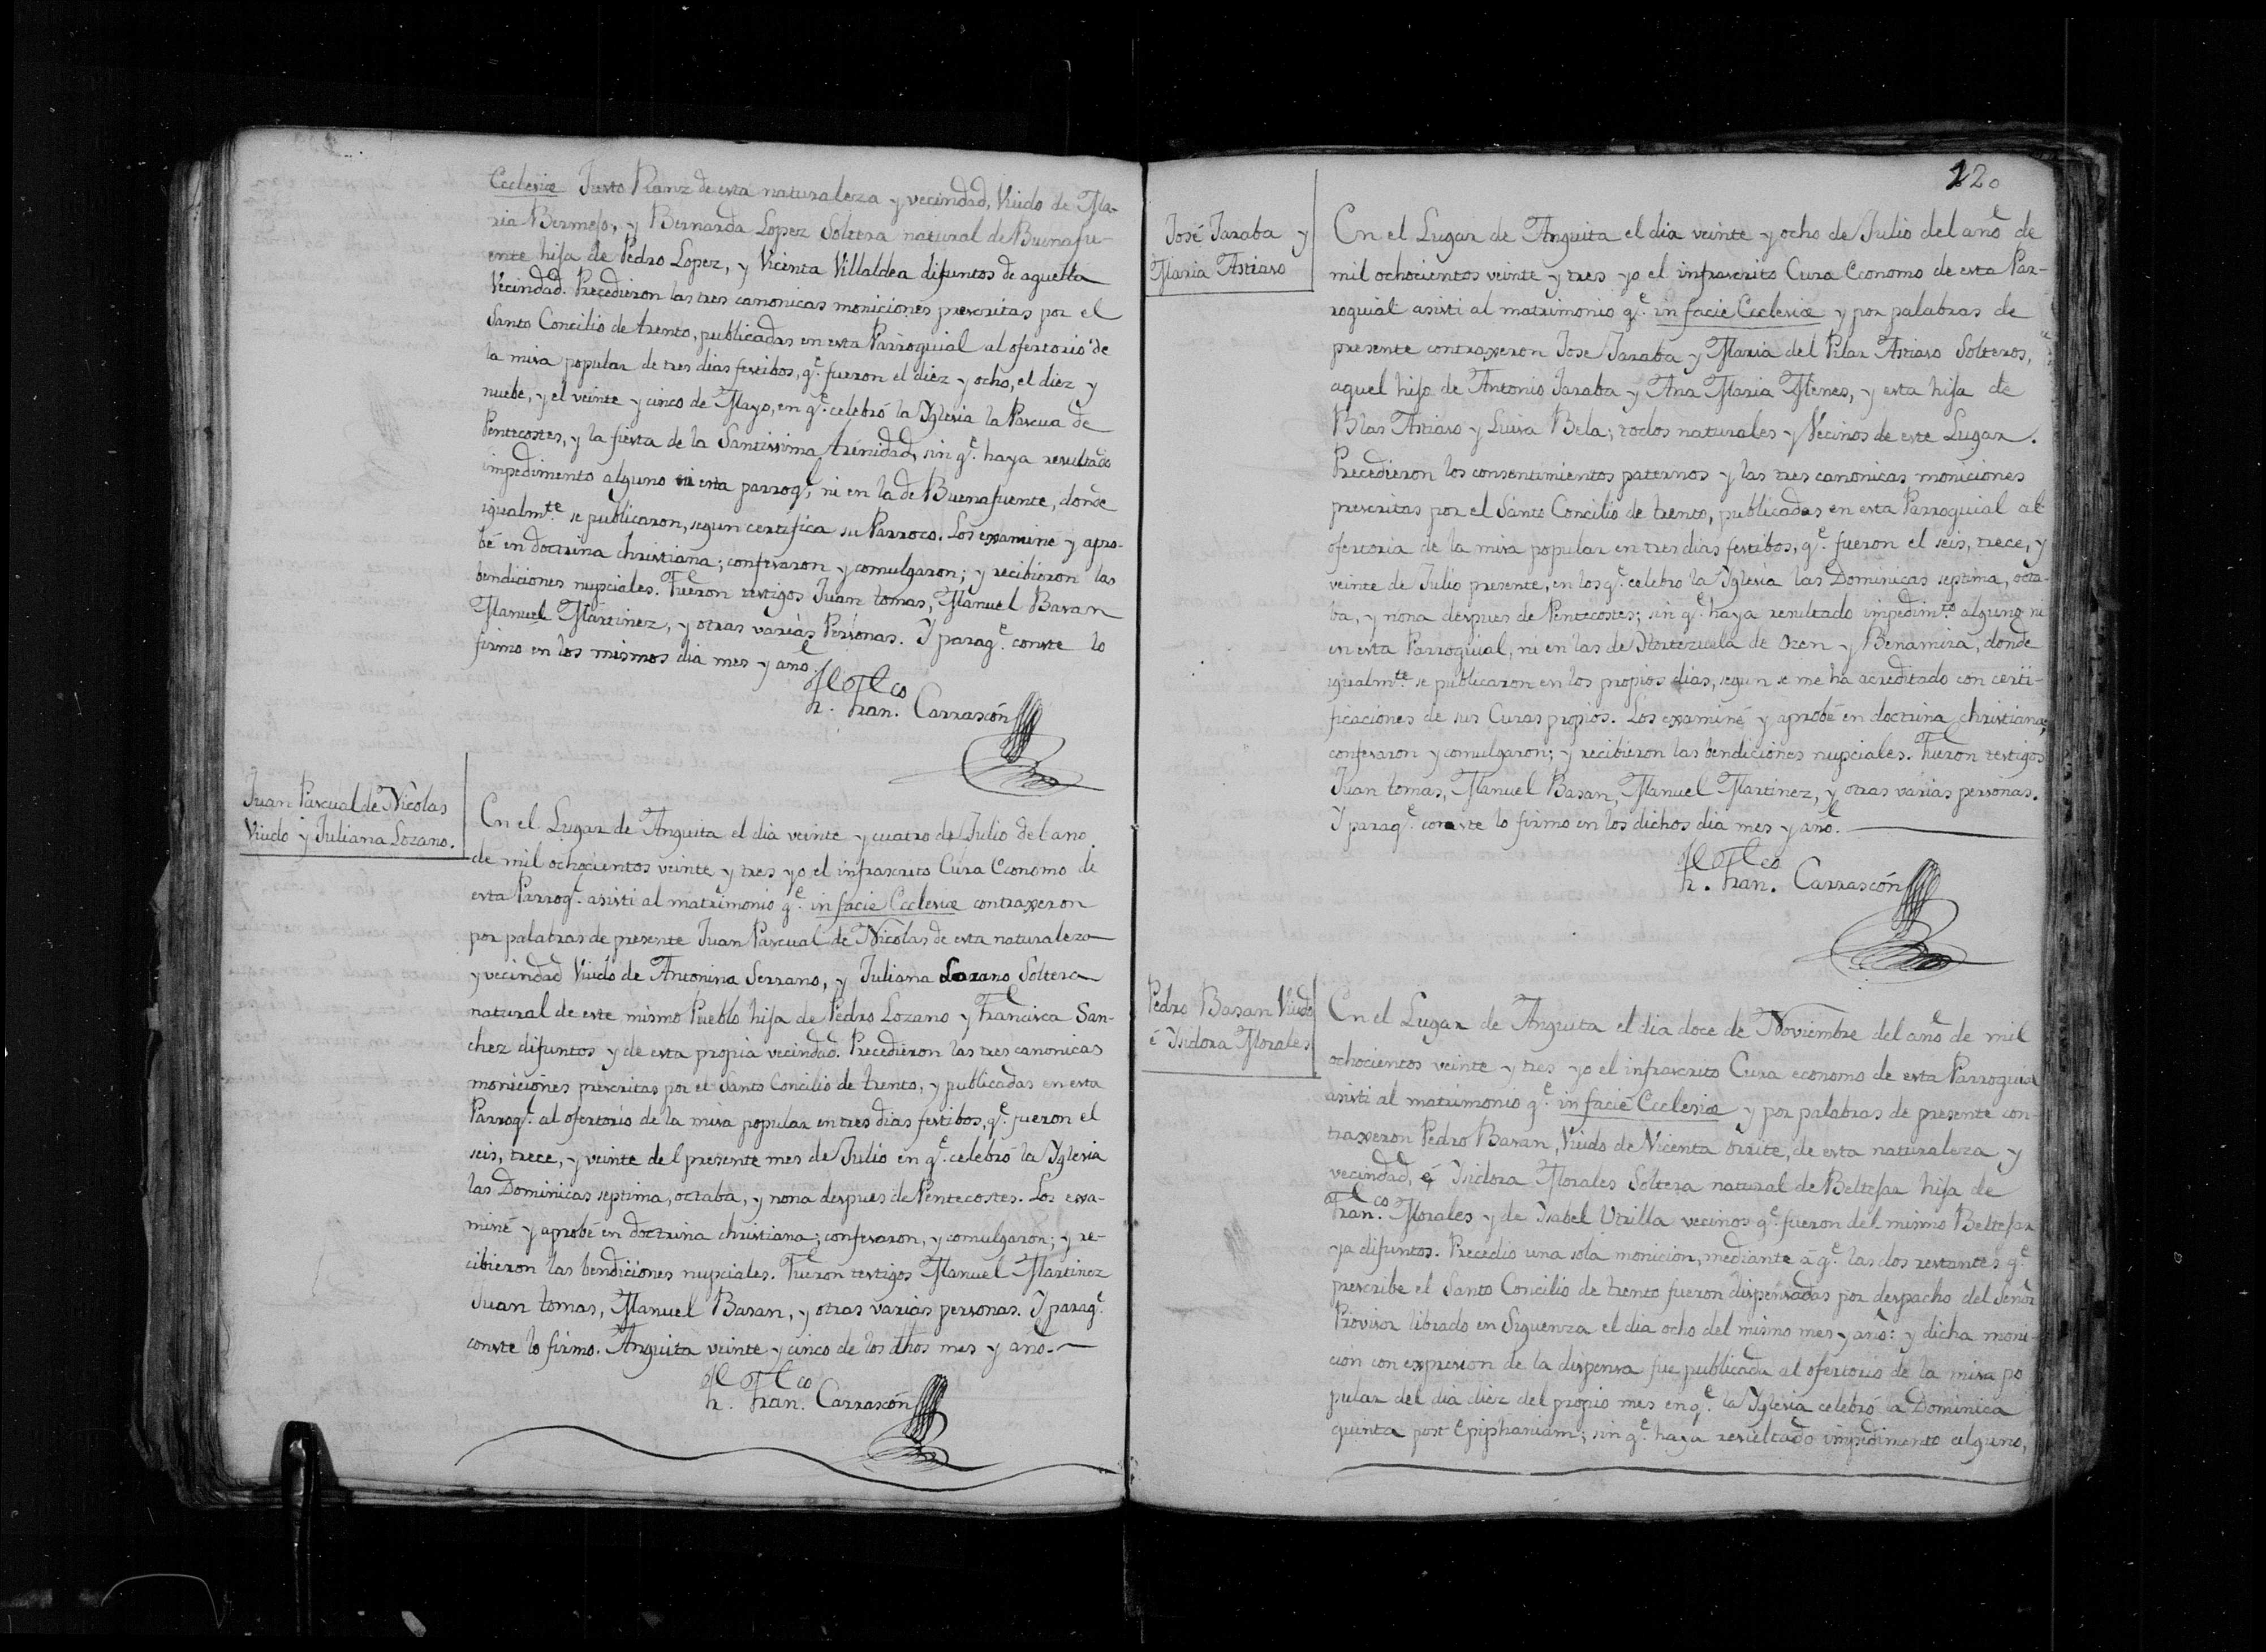 Ecclesiæ Justo Ranz de esta naturaleza y vecindad, Viudo de Ma-
ria Bermejo, y Bernarda Lopez Soltera natural de Buenafu-
ente hija de Pedro Lopez, y Vicenta Villaldea difuntos de aquella
Vecindad. Precedieron las tres canonicas moniciones prescritas por el
Santo Concilio de trento, publicadas en esta Parroquial al ofertorio de
la misa popular de tres dias festibos, q.e fueron el diez y ocho, el diez y
nuebe, y el veinte y cinco de Mayo, en q.e celebró la Yglesia la Pascua de
Pentecostes, y la fiesta de la Santissima trenidad, sin q.e haya resultado
impedimento alguno ni en esta parroq.l, ni en la de Buenafuente, donde
igualm.te se publicaron, segun certifica su Parroco. Los examine y apro-
bé en doctrina christiana; confesaron y comulgaron; y recibieron las
bendiciones nupciales. Fueron testigos Juan tomas, Manuel Basan
Manuel Martinez, y otras varias Personas. Y paraq.e conste lo
firmo en los mismos dia mes y año.
Fr. Fran.co Carrascón
Juan Pascual de Nicolas
Viudo y Juliana Lozano.
En el Lugar de Anguita el dia veinte y cuatro de Julio del ano
de mil ochocientos veinte y tres yo el infrascrito Cura Economo de
esta Parroq.l asisti al matrimonio q.e in facie Ecclesiæ contraxeron
por palabras de presente Juan Pascual de Nicolas de esta naturaleza
y vecindad Viudo de Antonina Serrano, y Juliana Lozano Soltera
natural de este mismo Pueblo hija de Pedro Lozano y Francisca San-
chez difuntos y de esta propia vecindad. Precedieron las tres canonicas
moniciones prescritas por el Santo Concilio de trento, y publicadas en esta
Parroq.l al ofertorio de la misa popular en tres dias festibos, q.e fueron el
seis, trece, y veinte del presente mes de Julio en q.e celebró la Yglesia
las Dominicas septima, octaba, y nona despues de Pentecostes. Los exa-
miné y aprobé en doctrina christiana; confesaron, y comulgaron; y re-
cibieron las bendiciones nupciales. Fueron testigos Manuel Martinez
Juan tomas, Manuel Basan, y otras varias personas. Y paraq.e
conste lo firmo. Anguita veinte y cinco de los dhos mes y año.
Fr. Fran.co Carrascón
120
José Jaraba y
Maria Astiaso
En el Lugar de Anguita el dia veinte y ocho de Julio del año de
mil ochocientos veinte y tres yo el infrascrito Cura Economo de esta Par-
roquial asisti al matrimonio q.e in facie Ecclesiæ y por palabras de
presente contraxeron Jose Jaraba y Maria del Pilar Astiaso Solteros,
aquel hijo de Antonio Jaraba y Ana Maria Menes, y esta hija de
Blas Astiaso y Luisa Bela; todos naturales y Vecinos de este Lugar.
Precedieron los consentimientos paternos y las tres canonicas moniciones
prescritas por el Santo Concilio de trento, publicadas en esta Parroquial al
ofertoria de la misa popular en tres dias festibos, q.e fueron el seis, trece, y
veinte de Julio presente, en los q.e celebro la Yglesia las Dominicas septima, octa-
ba, y nona despues de Pentecostes; sin q.e haya resultado impedim.to alguno ni
en esta Parroquial, ni en las de Hortezuela de Ozen y Benamira, donde
igualm.te se publicaron en los propios dias, segun se me ha acreditado con certi-
ficaciones de sus Curas propios. Los examiné y aprobé en doctrina christiana;
confesaron y comulgaron; y recibieron las bendiciones nupciales. Fueron testigos
Juan tomas, Manuel Basan, Manuel Martinez, y otras varias personas.
Y paraq.e conste lo firmo en los dichos dia mes y año.
Fr. Fran.co Carrascón
Pedro Basan Viudo
é Isidora Morales
En el Lugar de Anguita el dia doce de Noviembre del año de mil
ochocientos veinte y tres yo el infrascrito Cura economo de esta Parroquial
asisti al matrimonio q.e in facie Ecclesiæ y por palabras de presente con-
traxeron Pedro Basan, Viudo de Vicenta Orrite, de esta naturaleza y
vecindad, é Isidora Morales Soltera natural de Beltejar hija de
Fran.co Morales y de Isabel Utrilla vecinos q.e fueron del mismo Beltejar
ya difuntos. Precedio una sola monicion, mediante á q.e las dos restantes q.e
prescribe el Santo Concilio de trento fueron dispensadas por despacho del Señor
Provisor librado en Siguenza el dia ocho del mismo mes y año: y dicha moni-
cion con expresion de la dispensa fue publicada al ofertorio de la misa po
pular del dia diez del propio mes en q.e la Yglesia celebró la Dominica
quinta post Epiphaniam; sin q.e haya resultado impedimento alguno,